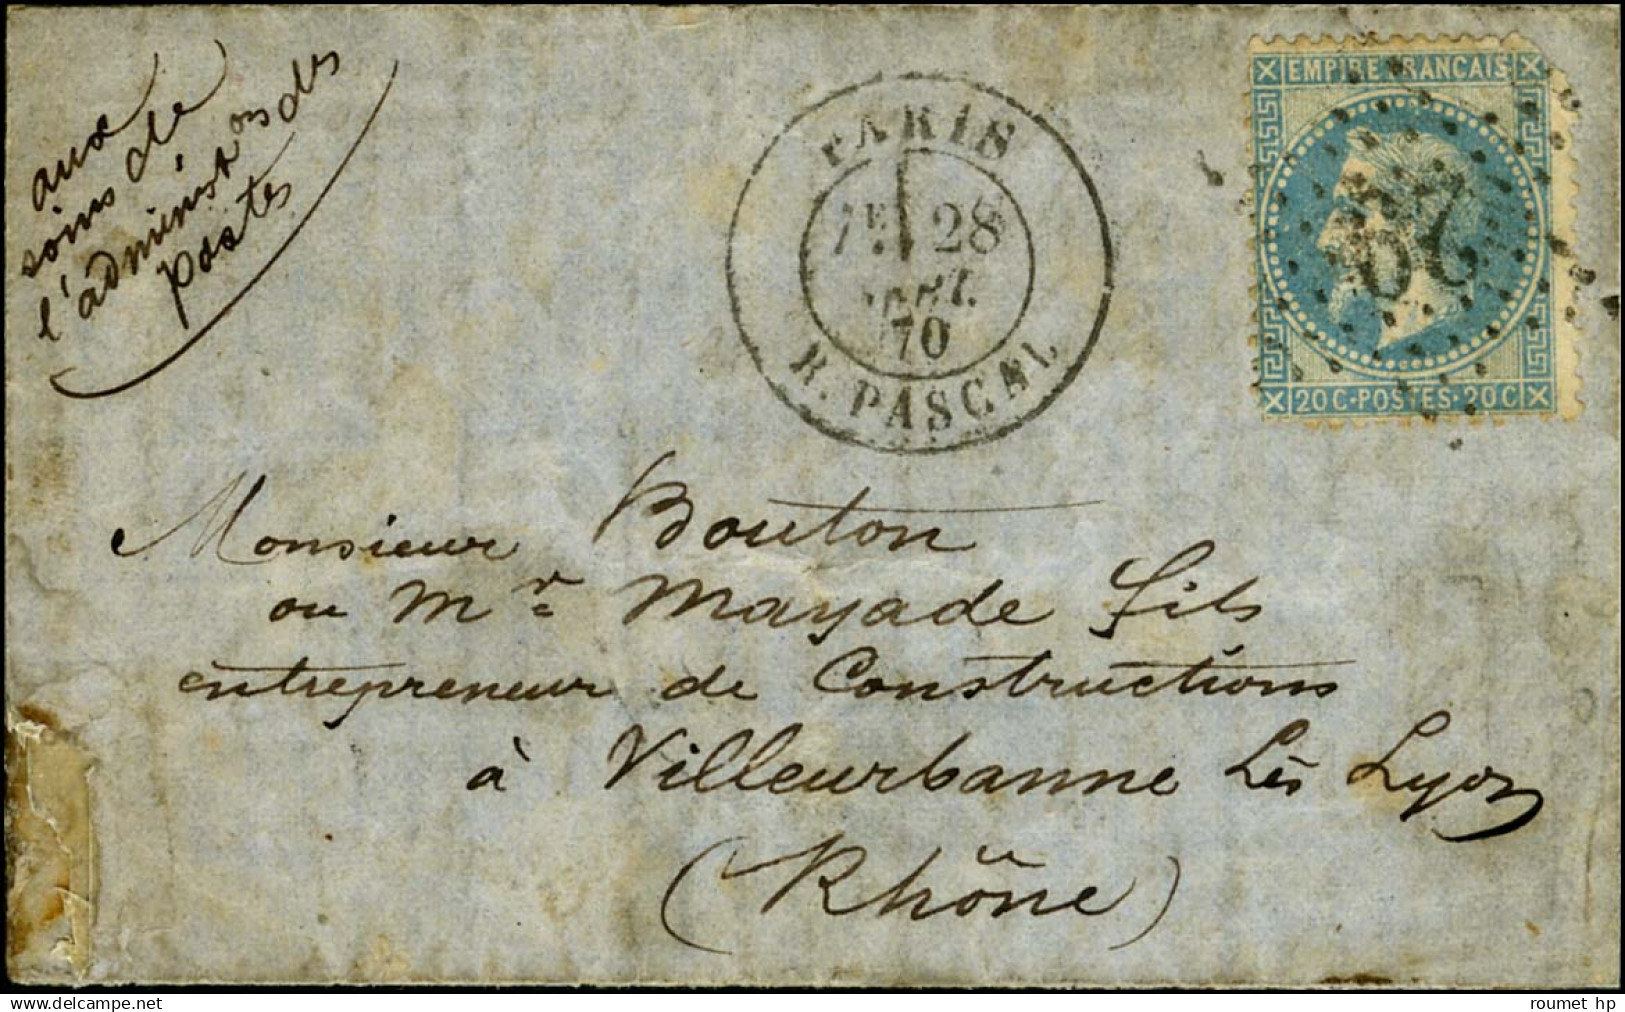 aux
soins de
l'administ^on des
postes
PARIS
1E 28
70
R. PASCAL
EMPIRE FRANCAIS
20C·POSTES·20C
Monsieur Bouton
ou Mr Mayade fils
entrepreneur de Constructions
à Villeurbanne Lès Lyon
(Rhône)
www.delcampe.net
roumet hp